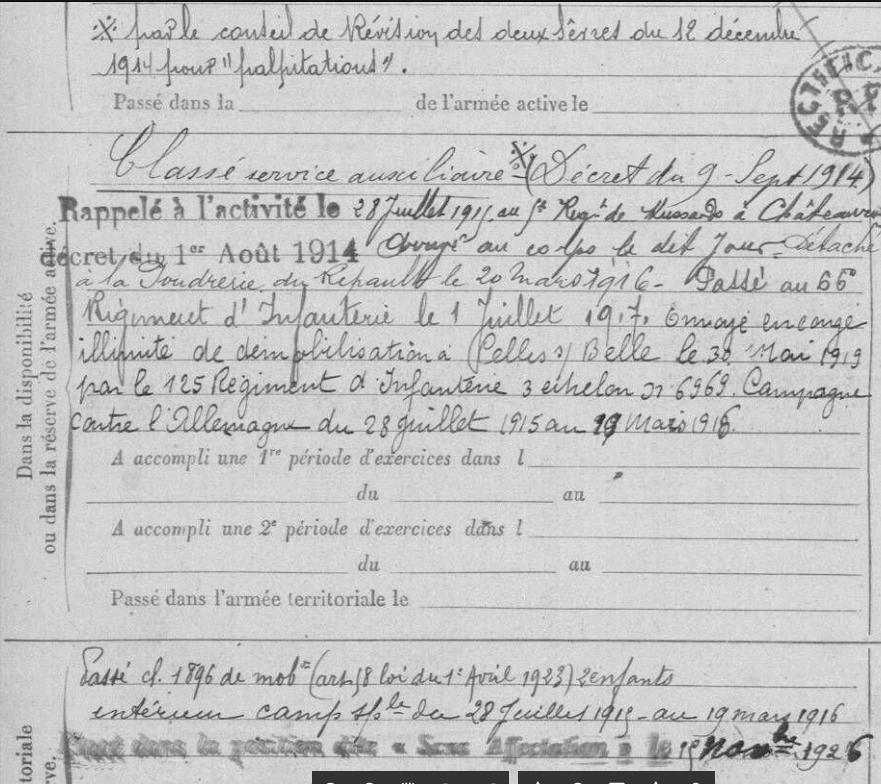 ※ par le conseil de Révision des deux Sèvres du 12 décembre
1914 pour "palpitations".
Passé dans la de l'armée active le
RECTIFIC
Classé service auxiliaire ※ (Décret du 9 - Sept 1914)
Rappelé à l'activité le 28 Juillet 1915 au Regt de Hussards à
décret du 1er Août 1914 Arrivé au corps le dit Jour - Détaché
à la Poudrerie du Ripault le 20 Mars 1916 - Passé au 66
Régiment d'Infanterie le 1 Juillet 1917. Envoyé en congé
illimité de démobilisation à Celles s/ Belle le 30 Mai 1919
par le 125 Régiment d'Infanterie 3 echelon n 6969. Campagne
contre l'Allemagne du 28 Juillet 1915 au 19 Mars 1916.
A accompli une 1re période d'exercices dans l
du au
A accompli une 2e période d'exercices dans l
du au
Passé dans l'armée territoriale le
Dans la disponibilité
ou dans la réserve de l'armée active.
Passé cl. 1896 de mobon (art 58 loi du 1er Avril 1923) 2 enfants
intérieur camp sple du 28 Juillet 1915 - au 19 mars 1916
dans la position dite « Sans Affectation » le 15 Novbre 1926
toriale
rve.